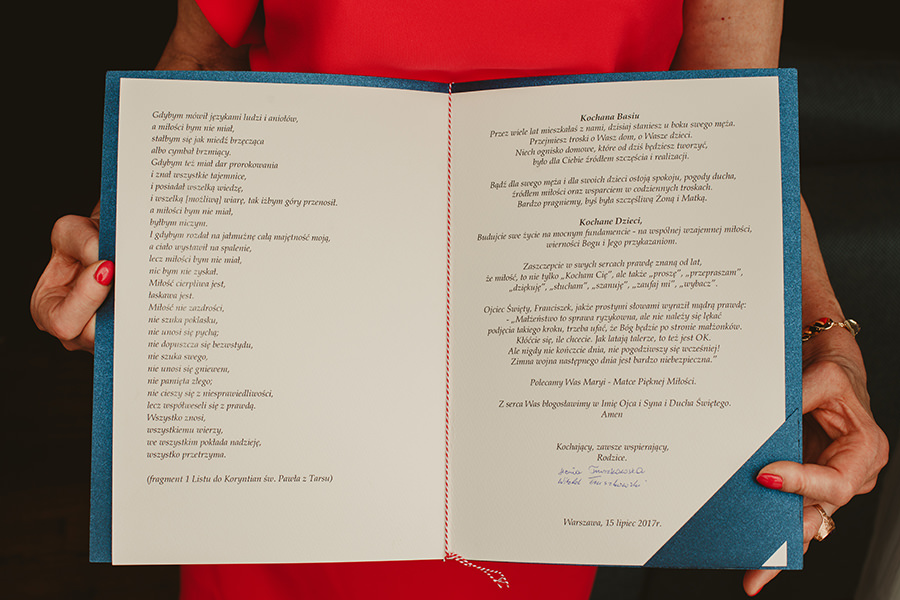 Gdybym mówił językami ludzi i aniołów,
a miłości bym nie miał,
stałbym się jak miedź brzęcząca
albo cymbał brzmiący.
Gdybym też miał dar prorokowania
i znał wszystkie tajemnice,
i posiadał wszelką wiedzę,
i wszelką [możliwą] wiarę, tak iżbym góry przenosił.
a miłości bym nie miał,
byłbym niczym.
I gdybym rozdał na jałmużnę całą majętność moją,
a ciało wystawił na spalenie,
lecz miłości bym nie miał,
nic bym nie zyskał.
Miłość cierpliwa jest,
łaskawa jest.
Miłość nie zazdrości,
nie szuka poklasku,
nie unosi się pychą;
nie dopuszcza się bezwstydu,
nie szuka swego,
nie unosi się gniewem,
nie pamięta złego;
nie cieszy się z niesprawiedliwości,
lecz współweseli się z prawdą.
Wszystko znosi,
wszystkiemu wierzy,
we wszystkim pokłada nadzieję,
wszystko przetrzyma.
(fragment 1 Listu do Koryntian św. Pawła z Tarsu)
Kochana Basiu
Przez wiele lat mieszkałaś z nami, dzisiaj staniesz u boku swego męża.
Przejmiesz troski o Wasz dom, o Wasze dzieci.
Niech ognisko domowe, które od dziś będziesz tworzyć,
było dla Ciebie źródłem szczęścia i realizacji.
Bądź dla swego męża i dla swoich dzieci ostoją spokoju, pogody ducha,
źródłem miłości oraz wsparciem w codziennych troskach.
Bardzo pragniemy, byś była szczęśliwą Żoną i Matką.
Kochane Dzieci,
Budujcie swe życie na mocnym fundamencie - na wspólnej wzajemnej miłości,
wierności Bogu i Jego przykazaniom.
Zaszczepcie w swych sercach prawdę znaną od lat,
że miłość, to nie tylko „Kocham Cię", ale także „proszę", „przepraszam",
„dziękuję", „słucham", „szanuję", „zaufaj mi", „wybacz".
Ojciec Święty, Franciszek, jakże prostymi słowami wyraził mądrą prawdę:
- „Małżeństwo to sprawa ryzykowna, ale nie należy się lękać
podjęcia takiego kroku, trzeba ufać, że Bóg będzie po stronie małżonków.
Kłóćcie się, ile chcecie. Jak latają talerze, to też jest OK.
Ale nigdy nie kończcie dnia, nie pogodziwszy się wcześniej!
Zimna wojna następnego dnia jest bardzo niebezpieczna."
Polecamy Was Maryi - Matce Pięknej Miłości.
Z serca Was błogosławimy w Imię Ojca i Syna i Ducha Świętego.
Amen
Kochający, zawsze wspierający,
Rodzice.
Warszawa, 15 lipiec 2017r.